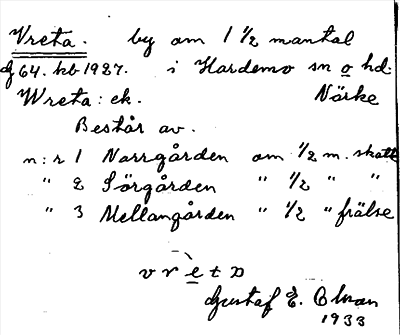 Vreta. by om 1 1/2 mantal
g 64. kb 1927. i Hardemo sn o hd.
Wreta: ek. Närke
Består av.
n:r 1 Norrgården om 1/2 m. skatte
" 2 Sörgården " 1/2 " "
" 3 Mellangården " 1/2 " frälse
v r e t a
Gustaf E. Olsson
1933